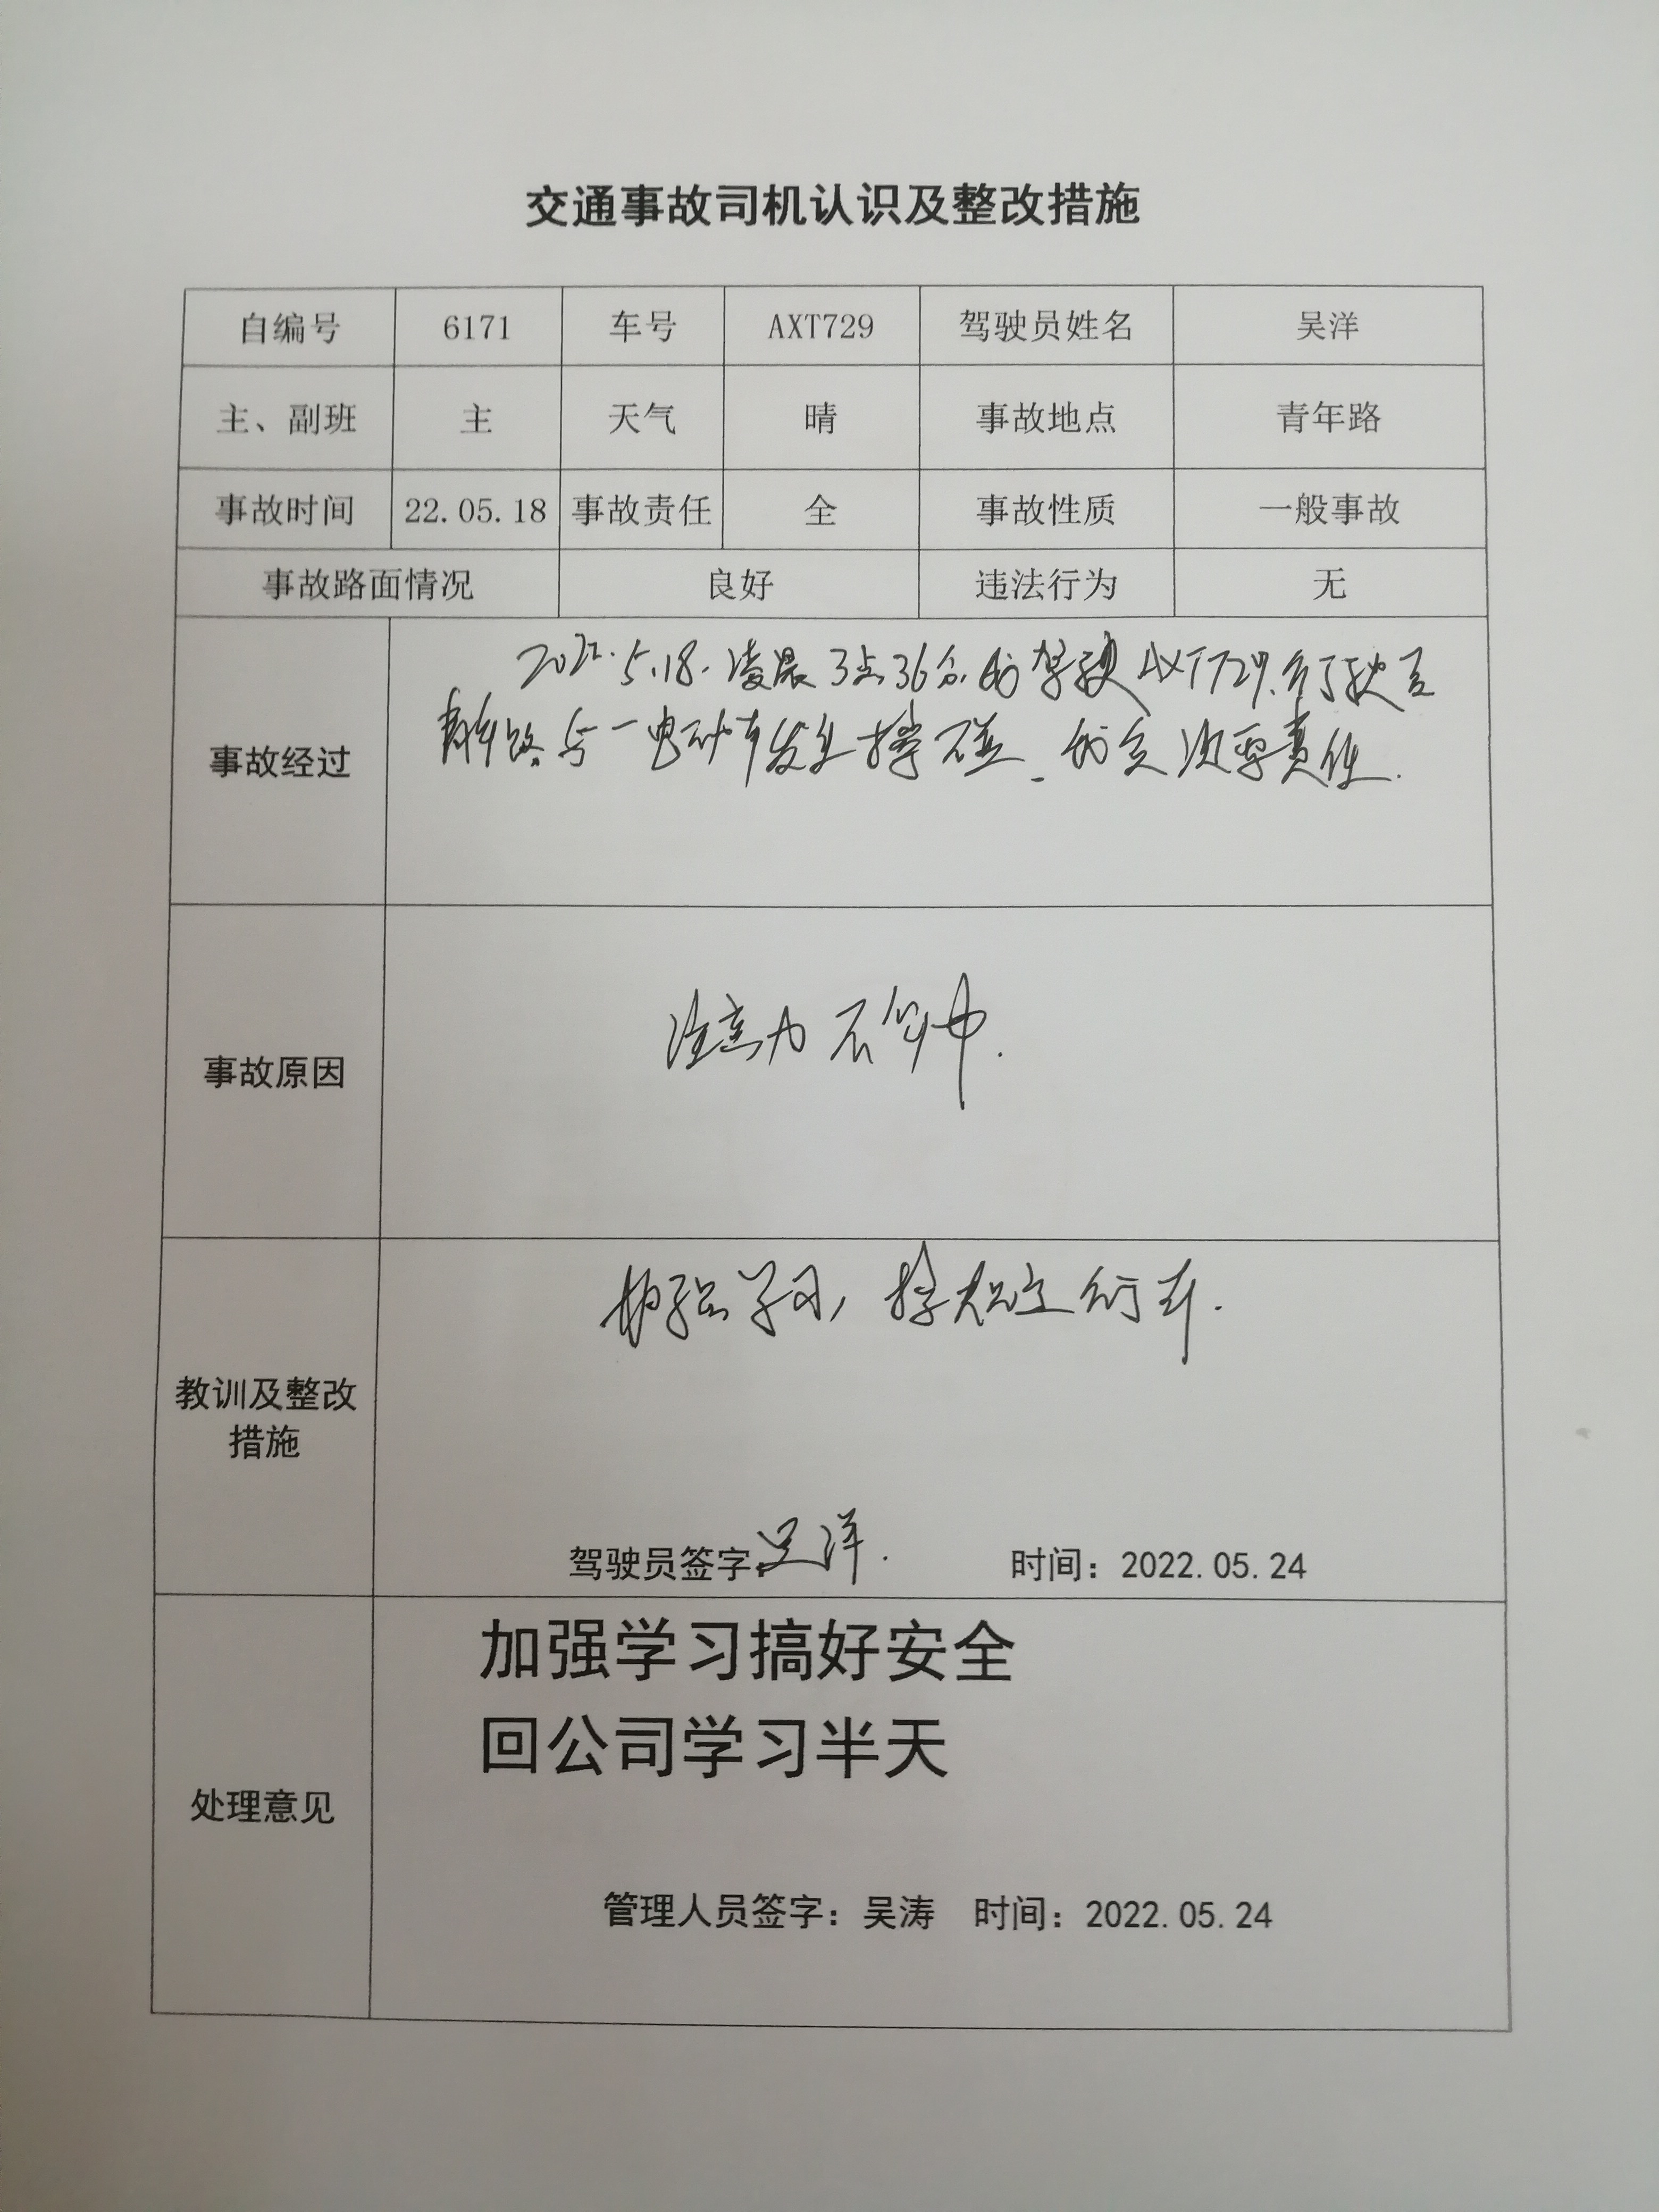 交通事故司机认识及整改措施
自编号 6171 车号 AXT729 驾驶员姓名 吴洋
主、副班 主 天气 晴 事故地点 青年路
事故时间 22.05.18 事故责任 全 事故性质 一般事故
事故路面情况 良好 违法行为 无
事故经过
2022.5.18.凌晨3点36分.我驾驶AXT729.行驶至
青年路与一电动车发生撑碰.我负次要责任.
事故原因
注意力不集中.
教训及整改
措施
加强学习,按规定行车.
驾驶员签字:吴洋. 时间:2022.05.24
处理意见
加强学习搞好安全
回公司学习半天
管理人员签字:吴涛 时间:2022.05.24